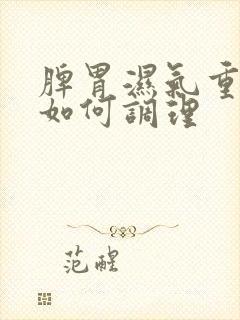 脾胃濕氣重
如何調理
范醒